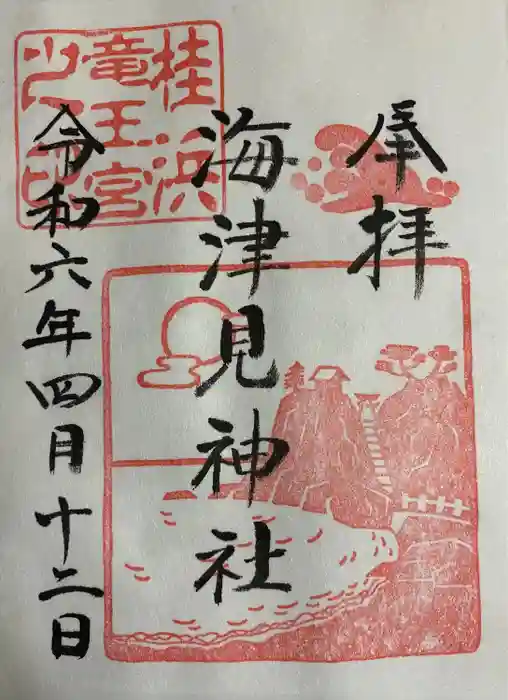 奉拝
海津見神社
令和六年四月十二日
桂浜
竜王宮
之印